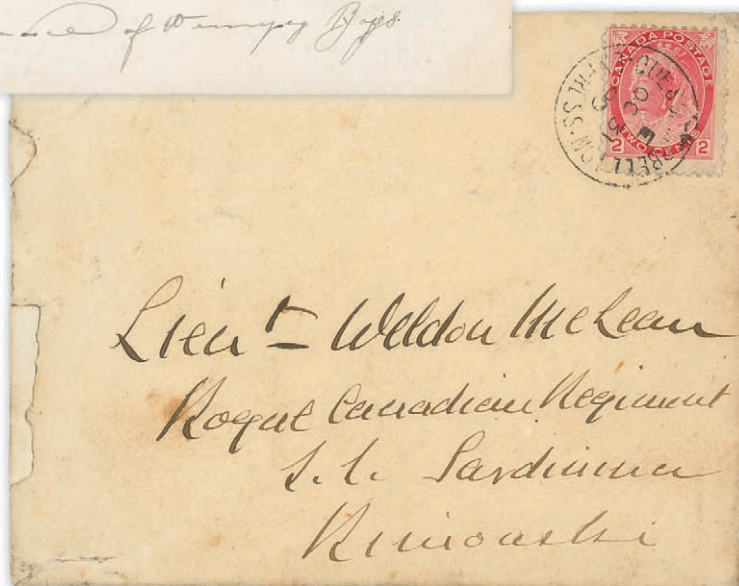 of Winnipeg Boys
CANADA POSTAGE
TWO CENTS
2 2
Lieut - Weldon McLean
Royal Canadian Regiment
S.S. Sardinian
Rimouski